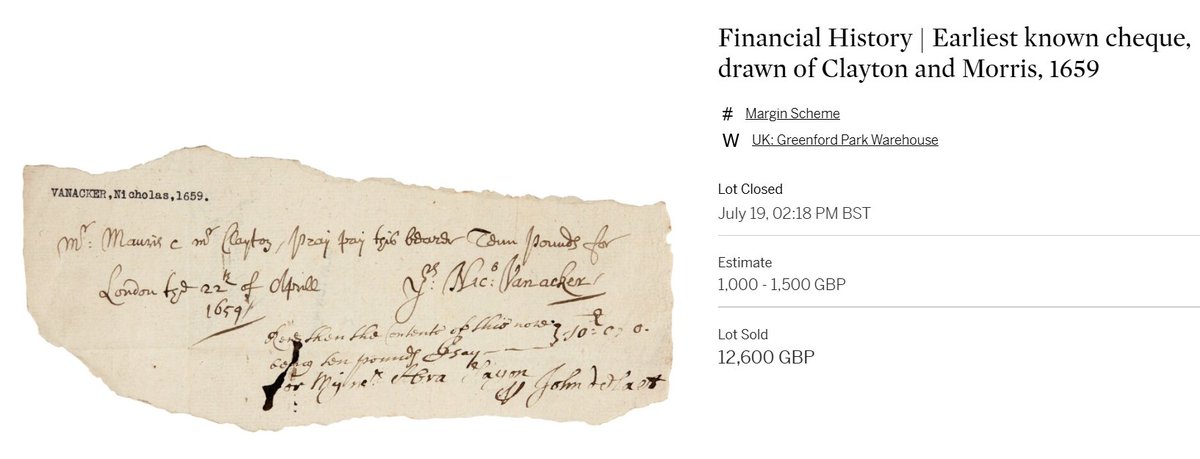 VANACKER,Nicholas,1659.
Mr: Mauris & mr Clayton, pray pay this bearer Tenn pounds for
London the 22th of Aprill Yrs: Nico: Vanacker
1659
then the Contents of this note
being ten pounds I say 10: 0, 0.
for My mr Abra John
Financial History | Earliest known cheque,
drawn of Clayton and Morris, 1659
# Margin Scheme
W UK: Greenford Park Warehouse
Lot Closed
July 19, 02:18 PM BST
Estimate
1,000 - 1,500 GBP
Lot Sold
12,600 GBP